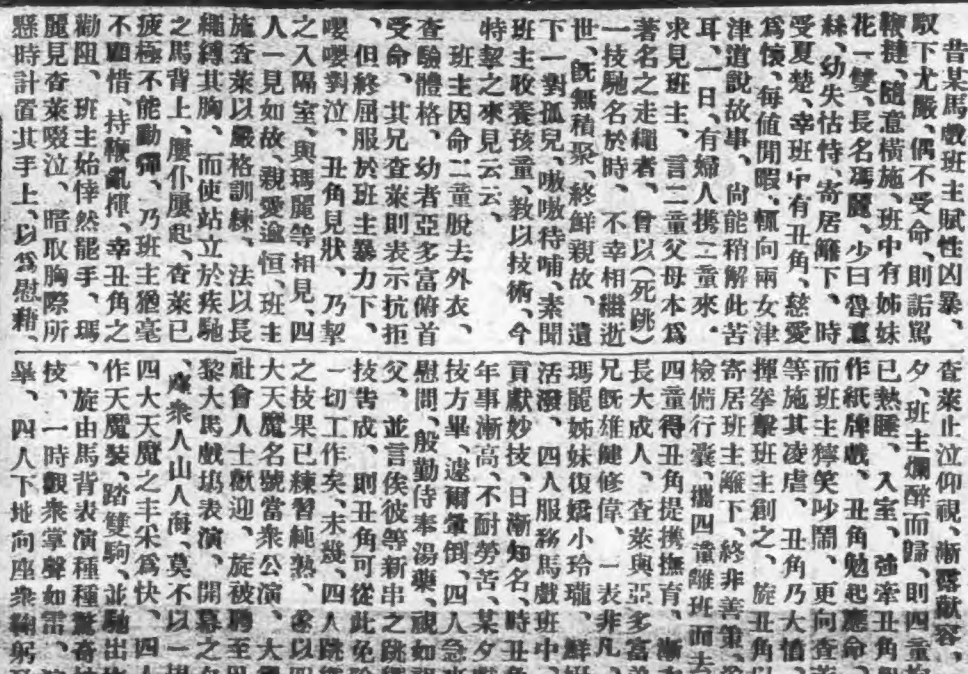 昔某馬戲班主賦性凶暴、
馭下尤嚴、偶不受命、則詬罵
鞭撻、隨意橫施、班中有姊妹
花一雙、長名瑪麗、少曰魯意
絲、幼失怙恃、寄居籬下、時
受夏楚、幸班中有丑角、慈愛
爲懷、每值閒暇、輒向兩女津
津道說故事、尙能稍解此苦
耳、一日、有婦人携二童來、
求見班主、言二童父母本爲
著名之走繩者、曾以(死跳)
一技馳名於時、不幸相繼逝
世、旣無積聚、終鮮親故、遺
下一對孤兒、嗷嗷待哺、素聞
班主收養孩童、敎以技術、今
特挈之來見云云、
班主因命二童脫去外衣、
查驗體格、幼者亞多富俯首
受命、其兄查萊則表示抗拒
、但終屈服於班主暴力下、
嚶嚶對泣、丑角見狀、乃挈
之入隔室、與瑪麗等相見、四
人一見如故、親愛逾恒、班主
施查萊以嚴格訓練、法以長
繩縛其胸、而使站立於疾馳
之馬背上、屢仆屢起、查萊已
疲極不能動彈、乃班主猶毫
不顧惜、持鞭亂揮、幸丑角之
勸阻、班主始悻然罷手、瑪
麗見查萊啜泣、暗取胸際所
懸時計置其手上、以爲慰藉、
查萊止泣仰視、漸露歡容、
夕、班主爛醉而歸、則四童
已熟睡、入室、強牽丑角
作紙牌戲、丑角勉起應命、
而班主獰笑吵鬧、更向查萊
等施其凌虐、丑角乃大憤、
揮拳擊班主創之、旋丑角以
寄居班主籬下、終非善策、
檢備行囊、攜四童離班而去
四童得丑角提携撫育、漸
長大成人、查萊與亞多富
兄旣雄健修偉、一表非凡、
瑪麗姊妹復嬌小玲瓏、鮮姸
活潑、四人服務馬戲班中、
貢獻妙技、日漸知名、時丑角
年事漸高、不耐勞苦、某夕獻
技方畢、遽爾暈倒、四人急
慰問、殷勤侍奉湯藥、視如
父、並言俟彼等新串之跳繩
技告成、則丑角可從此免
一切工作矣、未幾、四人跳繩
之技果已練習純熟、遂以四
大天魔名號當衆公演、大
社會人士歡迎、旋被聘至巴
黎大馬戲塲表演、開幕之夕
、席衆人山人海、莫不以一
四大天魔之丰采爲快、四人
作天魔裝、踏雙駒、並馳出
、旋由馬背表演種種驚奇
技、一時觀衆掌聲如雷、
畢、四人下地向座衆鞠躬